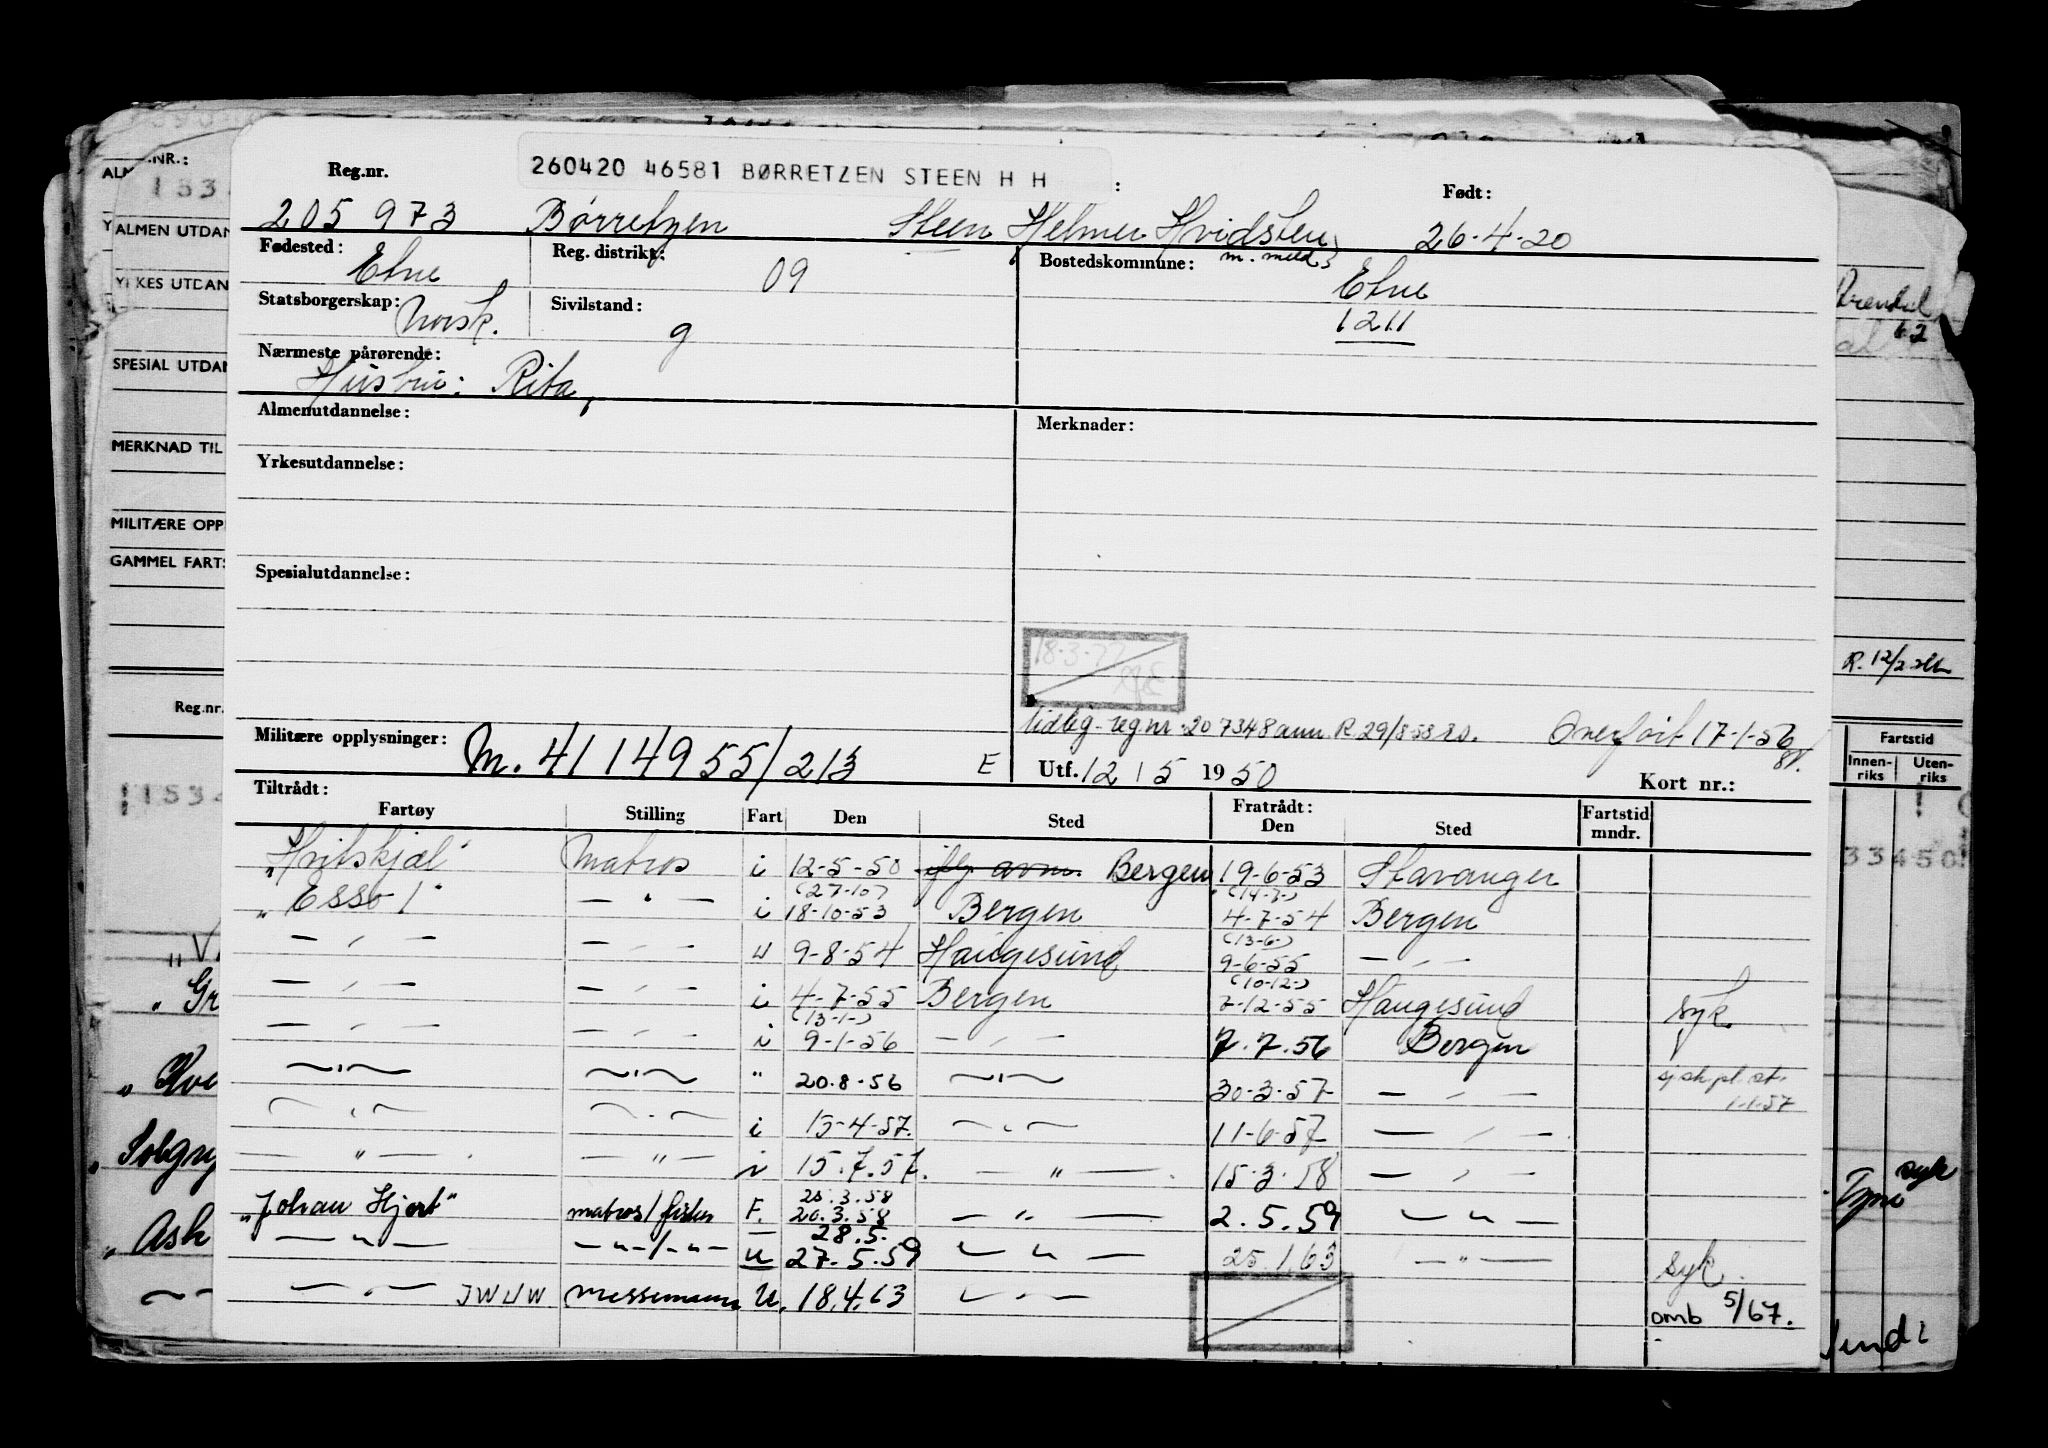 Reg.nr. 260420 46581 BØRRETZEN STEEN H H : Født:
205 973 Børretzen Steen Helmer Hvidsten 26-4-20
Fødested: Etne Reg. distrikt: 09 Bostedskommune: Etne
Statsborgerskap: Norsk. Sivilstand: g 1211
Nærmeste pårørende:
Hustru: Rita,
Almenutdannelse: Merknader:
Yrkesutdannelse:
Spesialutdannelse:
18-3-77
tidlig. reg nr. 207348 ann. R 29/8-53 Overført 17-1-56
Militære opplysninger: M. 4114955/213 E Utf. 12 / 5 1950 Kort nr.:
Tiltrådt: Fratrådt:
Fartøy Stilling Fart Den Sted Den Sted Fartstid mndr.
"Hvitskjæl" Matros i 12-5-50 Bergen 19-6-53 Stavanger
(27-10) (14-7-)
"Esso 1" — " — i 18-10-53 Bergen 4-7-54 Bergen
(13-6-)
— " — — " — u 9-8-54 Haugesund 9-6-55 — " —
(10-12-)
— " — — " — i 4-7-55 Bergen 7-12-55 Haugesund syk.
(13-1-)
— " — — " — i 9-1-56 — " — 7.7.56 Bergen
— " — — " — " 20.8-56 — " — 30-3-57 — " —
1-1-57
— " — — " — i 15-4-57. — " — 11-6-57 — " —
— " — — " — i 15.7.57. — " — 15-3-58 — " —
25.3.58
"Johan Hjort" matros/fisker F. 20.3.58 — " — 2.5.59 — " —
28.5.
— " — — " — / — " — u 27.5.59 — " — 25.1.63 — " — syk.
— " — JWUW messemann U. 18.4.63 — " — omb 5/67.
ALMEN UTDAN
YRKES UTDAN
SPESIAL UTDAN
MERKNAD TIL
MILITÆRE OPP
GAMMEL FARTS
Reg.nr.
Arendal
R. 12/2
Fartstid
Innen-riks Uten-riks
33450
syk